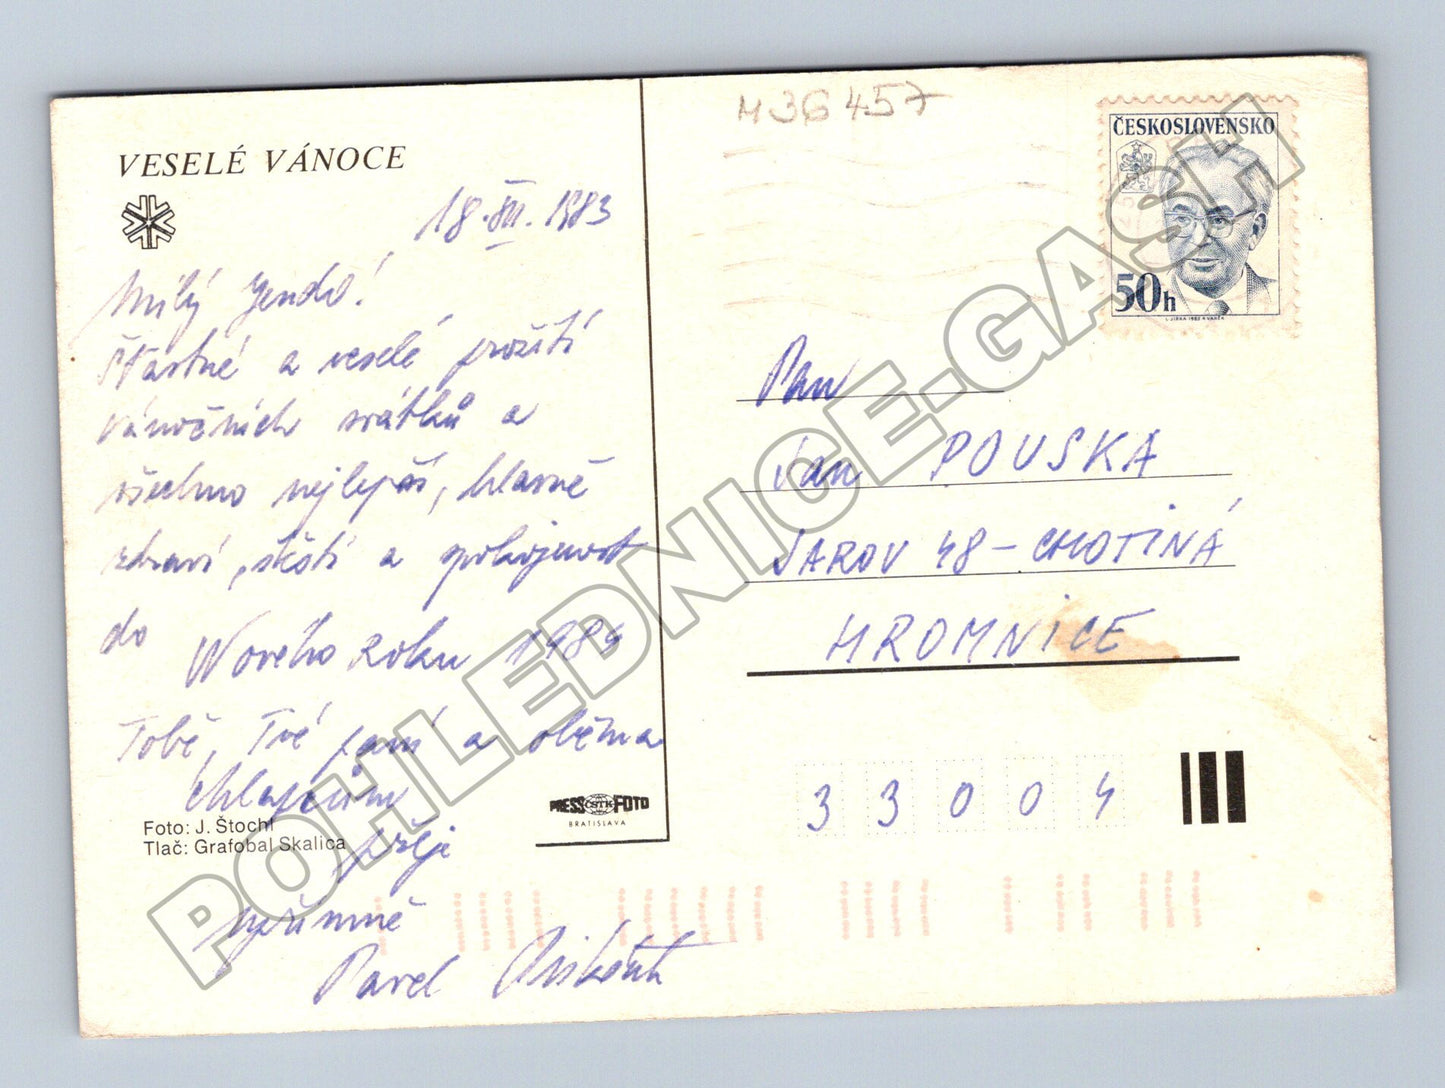 VESELÉ VÁNOCE
18. XII. 1983
Milý Jendo!
Šťastné a veselé prožití
vánočních svátků a
všechno nejlepší, hlavně
zdraví, štěstí a spokojenost
do Nového roku 1984
Tobě, Tvé paní a oběma
chlapcům
přeje
upřímně
Pavel
Foto: J. Štochl
Tlač: Grafobal Skalica
PRESS ČSTK FOTO
BRATISLAVA
M36457
ČESKOSLOVENSKO
50h
Pan
Jan POUSKA
JAROV 48 - CHOTINÁ
HROMNICE
33004
POHLEDNICE-GASH